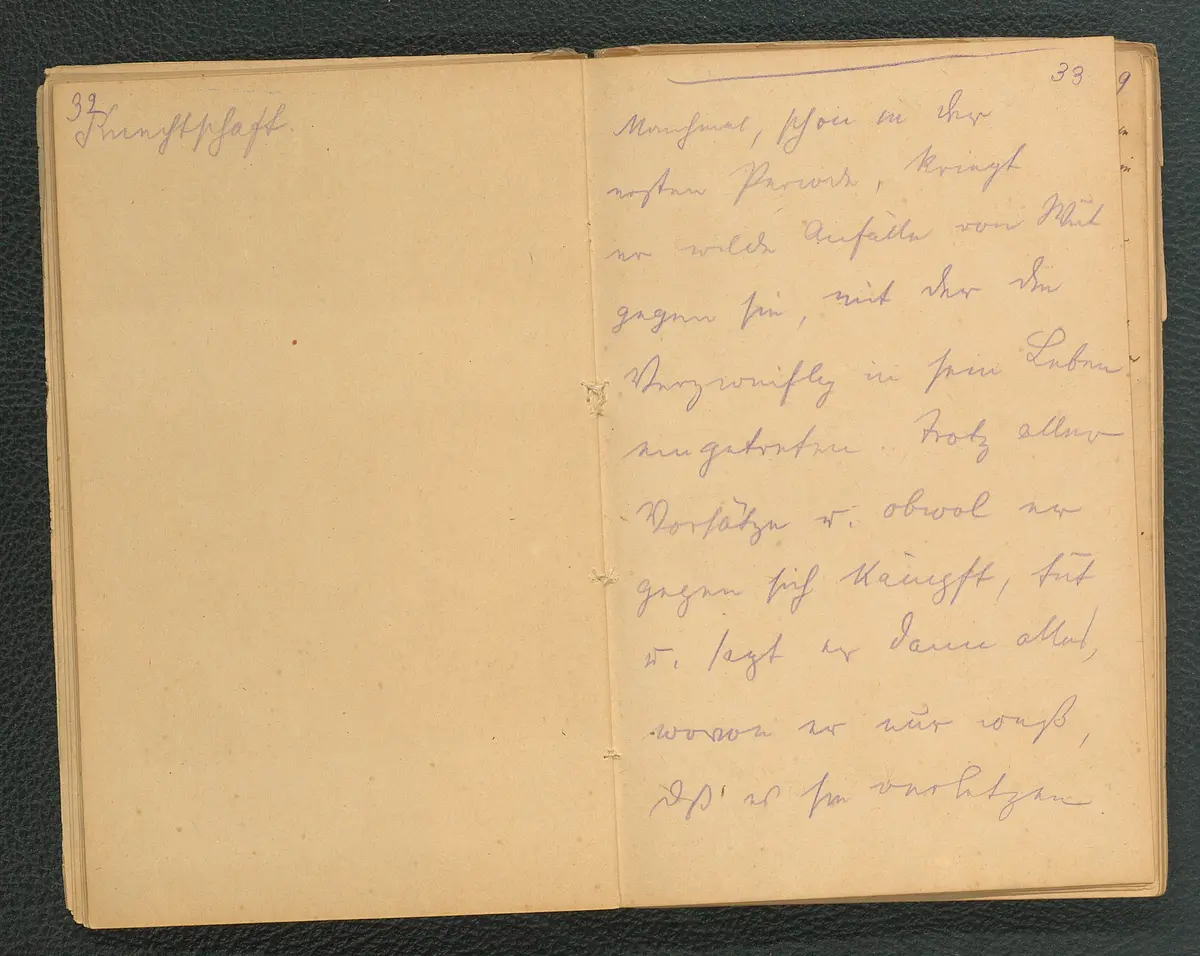 32
Knechtschaft.
33
Manchmal, schon in der
ersten Periode, kriegt
er wilde Anfälle von Wut
gegen sie, mit der die
Verzweiflg in sein Leben
eingetreten. Trotz aller
Vorsätze u. obwol er
gegen sich kämpft, tut
u. sagt er dann alles,
wovon er nur weiß,
dß es sie verletzen
9